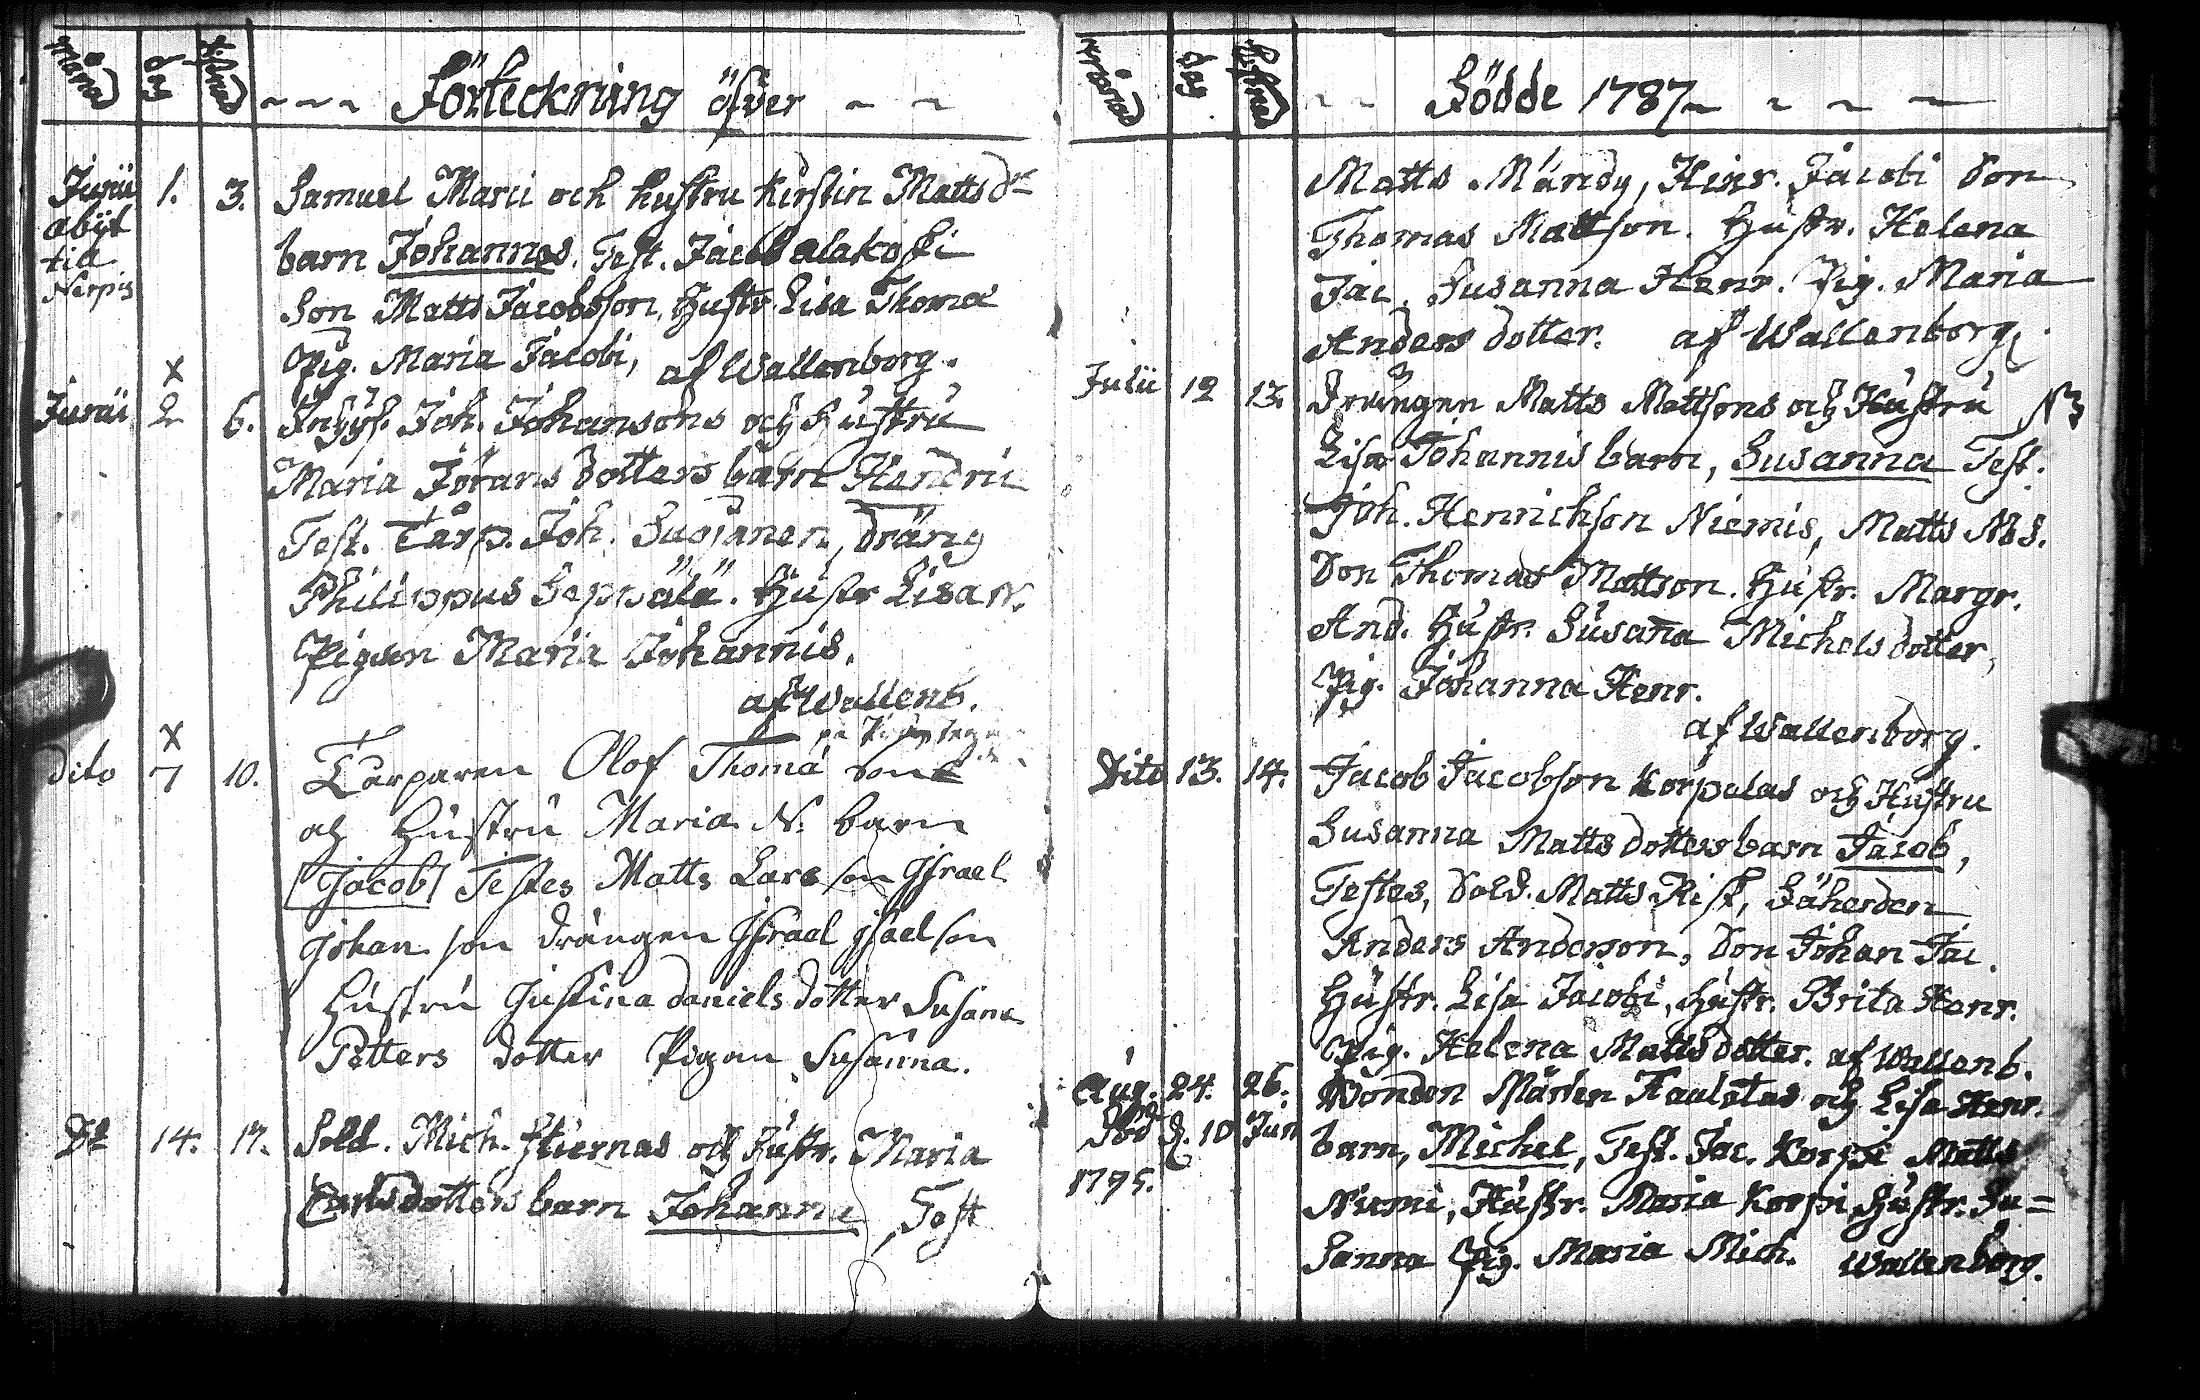 månad dag
Förteckning öfver
Junii 1. 3. Samuel Marci och hustru Kirstin Mattsdr
abijt
barn Johannes. Test. Jacob alakoski
tid
Nerpis
Son Matts Jacobsson, Hustr. Lisa Thomæ
Pig. Maria Jacobi, af Wallenborg.
x
Junii 2 6. Inhys. Joh. Johansons och Hustru
Maria Jörans dotters barn Hendric
Test. Tårp. Joh. Susanen, dräng
Philippus Seppälä. Hustr Lisa N.
Pigan Maria Johannis.
af Wallenb.
x
dito 7 10. Tårparen Olof Thomä son
och Hustru Maria N. barn
Jacob Testes Matts Lars son Jsrael
Johan son drängen Jsrael son
Hustru Justina daniels dotter Susana
Petters dotter Pigan Susanna.
Dt 14. 17. Sold. Mich. Stiernas och Hustr. Maria
dotters barn Johanna, Test
månad dag
Födde 1787
Matts Mändy, Hinr. Jacobi Son
Thomas Mattson. Hustr. Helena
Jac. Susanna Henr. Pig. Maria
Anders dotter. af Wallenborg.
Julii 12 13. Drängen Matts Mattsons och Hustru
Lisa Johannis barn, Susanna Test.
Joh. Henrichson Niemis, Matts
Son Thomas Mattson. Hustr. Margr.
And. Hustr. Susana Michels dotter,
Pig. Johanna Henr.
af Wallenborg.
Dito 13. 14. Jacob Jacobson Korpelas och Hustru
Susanna Matts dotters barn Jacob,
Testes, Sold. Matts Risk,
Anders Anderson, Son Johan Jac.
Hustr. Lisa Jacobi, Hustr. Brita Henr.
Pig. Helena Matts dotter. af Wallenb.
Aug. 24. 26. Bonden Mårten och Lisa Henr.
d. 10 Jun
barn, Michel, Test. Jac. Korpi Matts
1795.
Niemi, Hustr. Maria Korpi Hustr. Su=
sanna Pig. Maria Mich. Wallenborg.